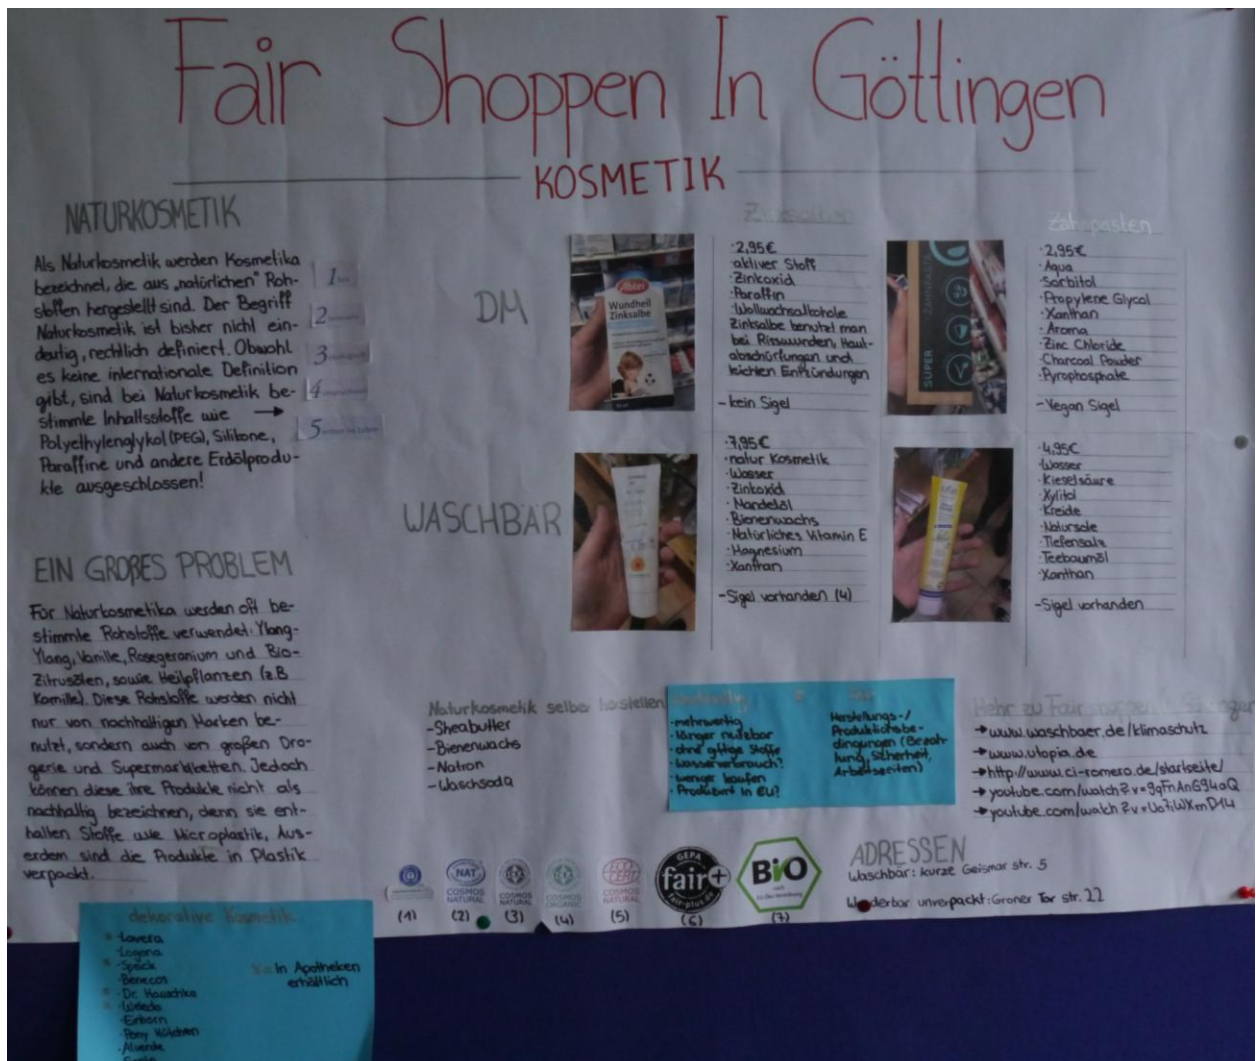 Fair Shoppen In Göttingen
KOSMETIK
NATURKOSMETIK
Als Naturkosmetik werden Kosmetika
bezeichnet, die aus „natürlichen" Roh-
stoffen hergestellt sind. Der Begriff
Naturkosmetik ist bisher nicht ein-
deutig, rechtlich definiert. Obwohl
es keine internationale Definition
gibt, sind bei Naturkosmetik be-
stimmte Inhaltsstoffe wie →
Polyethylenglykol (PEG), Silikone,
Paraffine und andere Erdölprodu-
kte ausgeschlossen!
1
2
3
4
5
EIN GROßES PROBLEM
Für Naturkosmetika werden oft be-
stimmte Rohstoffe verwendet: Ylang-
Ylang, Vanille, Rosegeranium und Bio-
Zitrusölen, sowie Heilpflanzen (z.B
Kamille). Diese Rohstoffe werden nicht
nur von nachhaltigen Marken be-
nutzt, sondern auch von großen Dro-
gerie und Supermarktketten. Jedoch
können diese ihre Produkte nicht als
nachhaltig bezeichnen, denn sie ent-
halten Stoffe wie Microplastik, Aus-
erdem sind die Produkte in Plastik
verpackt.
DM
Abtei
Wundheil
Zinksalbe
·2,95€
·aktiver Stoff
·Zinkoxid
·Paraffin
·Wollwachsalkohole
Zinksalbe benutzt man
bei Risswunden, Haut-
abschürfungen und
leichten Entzündungen
-kein Sigel
SUPER
ZAHNPASTA
Zahnpasten
·2,95€
·Aqua
·Sorbitol
·Propylene Glycol
·Xanthan
·Aroma
·Zinc Chloride
·Charcoal Powder
·Pyrophosphate
-Vegan Sigel
WASCHBÄR
·7,95€
·natur Kosmetik
·Wasser
·Zinkoxid
·Mandelöl
·Bienenwachs
·Natürliches Vitamin E
·Magnesium
·Xanthan
-Sigel vorhanden (4)
·4,95€
·Wasser
·Kieselsäure
·Xylitol
·Kreide
·Natursole
·Tiefensalz
·Teebaumöl
·Xanthan
-Sigel vorhanden
Naturkosmetik selber herstellen
-Sheabutter
-Bienenwachs
-Natron
-Waschsoda
·mehrwertig
·länger nutzbar
·ohne giftige Stoffe
·wasserverbrauch?
·weniger kaufen
·Produziert in EU?
Herstellungs-/
Produktionsbe-
dingungen (Bezah-
lung, Sicherheit,
Arbeitszeiten)
Mehr zu Fair shoppen in Göttingen
→www.waschbaer.de/klimaschutz
→www.utopia.de
→http://www.ci-romero.de/startseite/
ADRESSEN
Waschbär: kurze Geismar str. 5
Wunderbar unverpackt: Groner Tor str. 22
NAT
COSMOS
NATURAL
COSMOS
NATURAL
COSMOS
ORGANIC
ECO
CERT
COSMOS
NATURAL
GEPA
fair+
fair-plus.de
BiO
nach
EG-Öko-Verordnung
(1) (2) (3) (4) (5) (6) (7)
dekorative Kosmetik
·Lavera
·Logona
·Speick
·Benecos
·Dr. Hauschka
·Weleda
·Einhorn
·Pony Hütchen
·Alverde
= In Apotheken
erhältlich